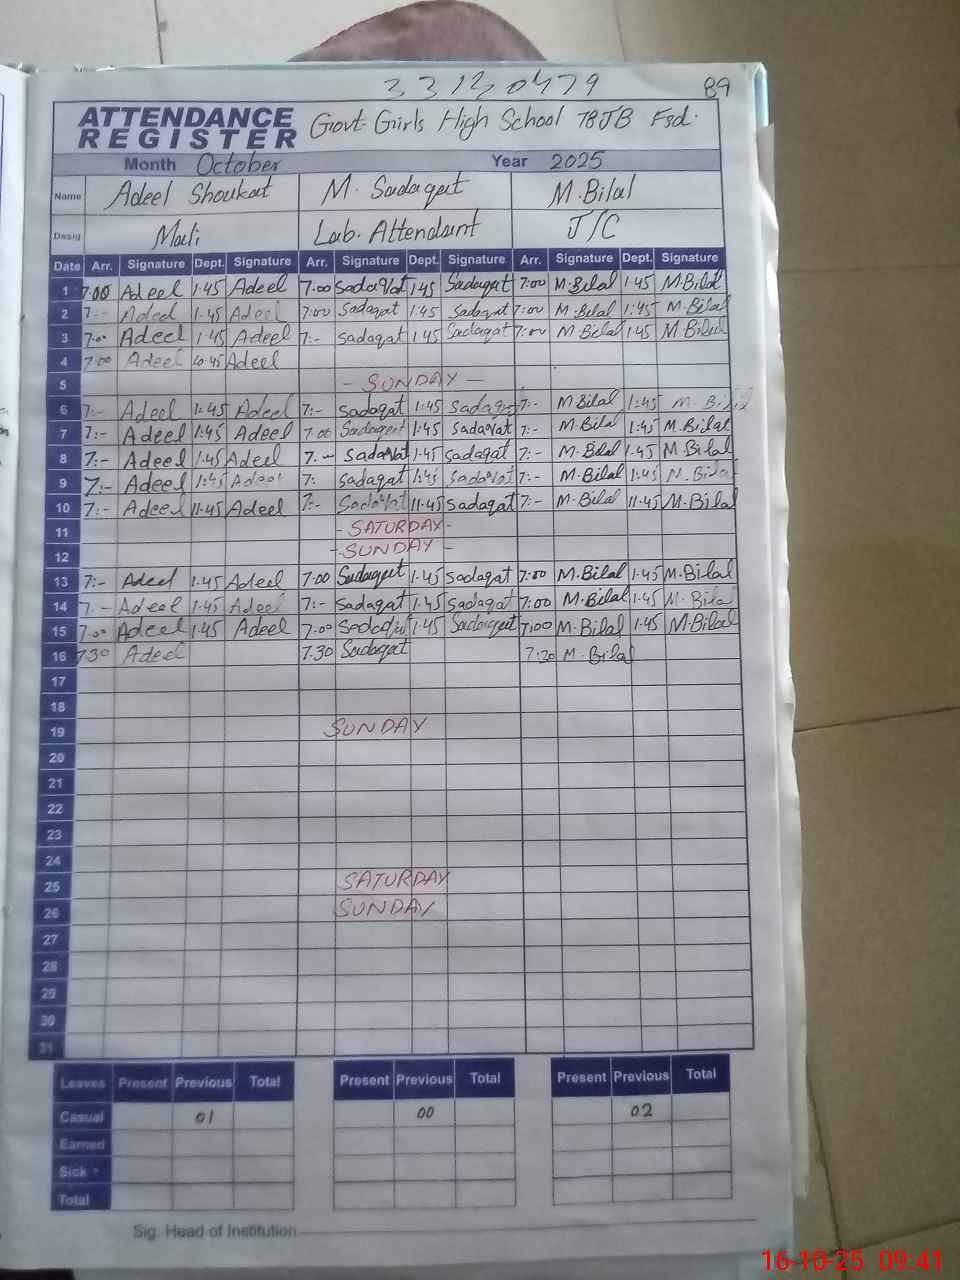 33120479 89
ATTENDANCE REGISTER Govt Girls High School 78JB Fsd.
Month October Year 2025
Name Adeel Shoukat M. Sadaqat M.Bilal
Desig Mali Lab. Attendant J/C
Date Arr. Signature Dept. Signature Arr. Signature Dept. Signature Arr. Signature Dept. Signature
1 7:00 Adeel 1:45 Adeel 7:00 Sadaqat 1:45 Sadaqat 7:00 M.Bilal 1:45 M.Bilal
2 7:- Adeel 1:45 Adeel 7:00 Sadaqat 1:45 Sadaqat 7:00 M.Bilal 1:45 M.Bilal
3 7:00 Adeel 1:45 Adeel 7:- Sadaqat 1:45 Sadaqat 7:00 M.Bilal 1:45 M.Bilal
4 7:00 Adeel 10:45 Adeel
5 - SUNDAY -
6 7:- Adeel 1:45 Adeel 7:- Sadaqat 1:45 Sadaqat 7:- M.Bilal 1:45 M.Bilal
7 7:- Adeel 1:45 Adeel 7:00 Sadaqat 1:45 Sadaqat 7:- M.Bilal 1:45 M.Bilal
8 7:- Adeel 1:45 Adeel 7:- Sadaqat 1:45 Sadaqat 7:- M.Bilal 1:45 M.Bilal
9 7:- Adeel 1:45 Adeel 7: Sadaqat 1:45 Sadaqat 7:- M.Bilal 1:45 M.Bilal
10 7:- Adeel 11:45 Adeel 7:- Sadaqat 11:45 Sadaqat 7:- M.Bilal 11:45 M.Bilal
11 - SATURDAY -
12 - SUNDAY -
13 7:- Adeel 1:45 Adeel 7:00 Sadaqat 1:45 Sadaqat 7:00 M.Bilal 1:45 M.Bilal
14 7:- Adeel 1:45 Adeel 7:- Sadaqat 1:45 Sadaqat 7:00 M.Bilal 1:45 M.Bilal
15 7:00 Adeel 1:45 Adeel 7:00 Sadaqat 1:45 Sadaqat 7:00 M.Bilal 1:45 M.Bilal
16 7:30 Adeel 7:30 Sadaqat 7:30 M.Bilal
17
18
19 SUNDAY
20
21
22
23
24
25 SATURDAY
26 SUNDAY
27
28
29
30
31
Leaves Present Previous Total Present Previous Total Present Previous Total
Casual 01 00 02
Earned
Sick
Total
Sig. Head of Institution
16-10-25 09:41